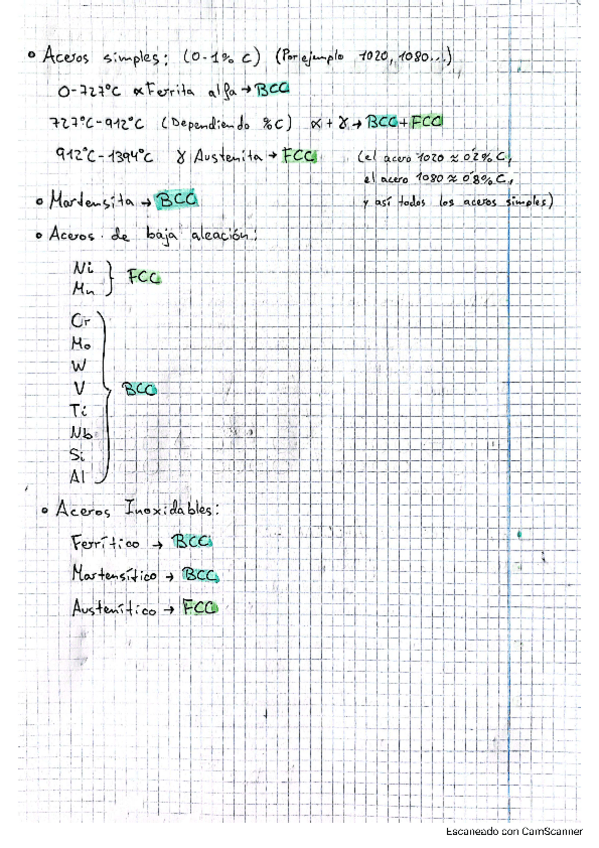 • Aceros simples: (0-1% C) (Por ejemplo 1020, 1080...)
0-727°C α Ferrita alfa → BCC
727°C-912°C (Dependiendo %C) α + γ → BCC + FCC
912°C-1394°C γ Austenita → FCC (el acero 1020 ≈ 0'2% C,
el acero 1080 ≈ 0'8% C,
y así todos los aceros simples)
• Martensita → BCC
• Aceros de baja aleación:
Ni
Mn } FCC
Cr
Mo
W
V } BCC
Ti
Nb
Si
Al
• Aceros Inoxidables:
Ferrítico → BCC
Martensítico → BCC
Austenítico → FCC
Escaneado con CamScanner